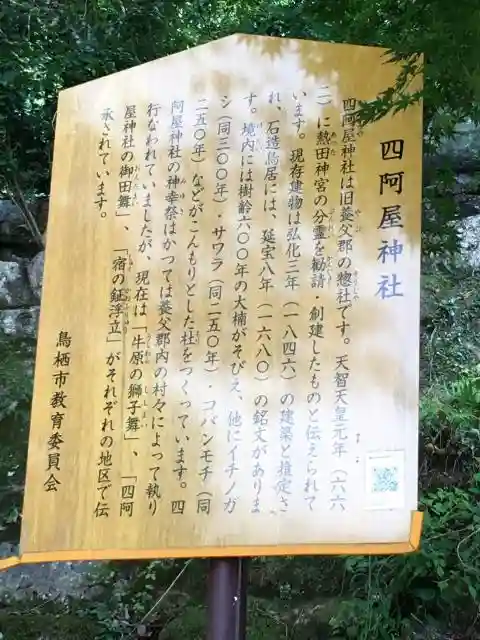 四阿屋神社
四阿屋神社は旧養父郡の惣社です。天智天皇元年（六六
二）に熱田神宮の分霊を勧請・創建したものと伝えられて
います。現存建物は弘化三年（一八四六）の建築と推定さ
れ、石造鳥居には、延宝八年（一六八〇）の銘文がありま
す。境内には樹齢六〇〇年の大楠がそびえ、他にイチノガ
シ（同三〇〇年）・サワラ（同二五〇年）・コバンモチ（同
二五〇年）などがこんもりとした杜をつくっています。四
阿屋神社の神幸祭はかつては養父郡内の村々によって執り
行なわれていましたが、現在は「牛原の獅子舞」、「四阿
屋神社の御田舞」、「宿の鉦浮立」がそれぞれの地区で伝
承されています。
鳥栖市教育委員会